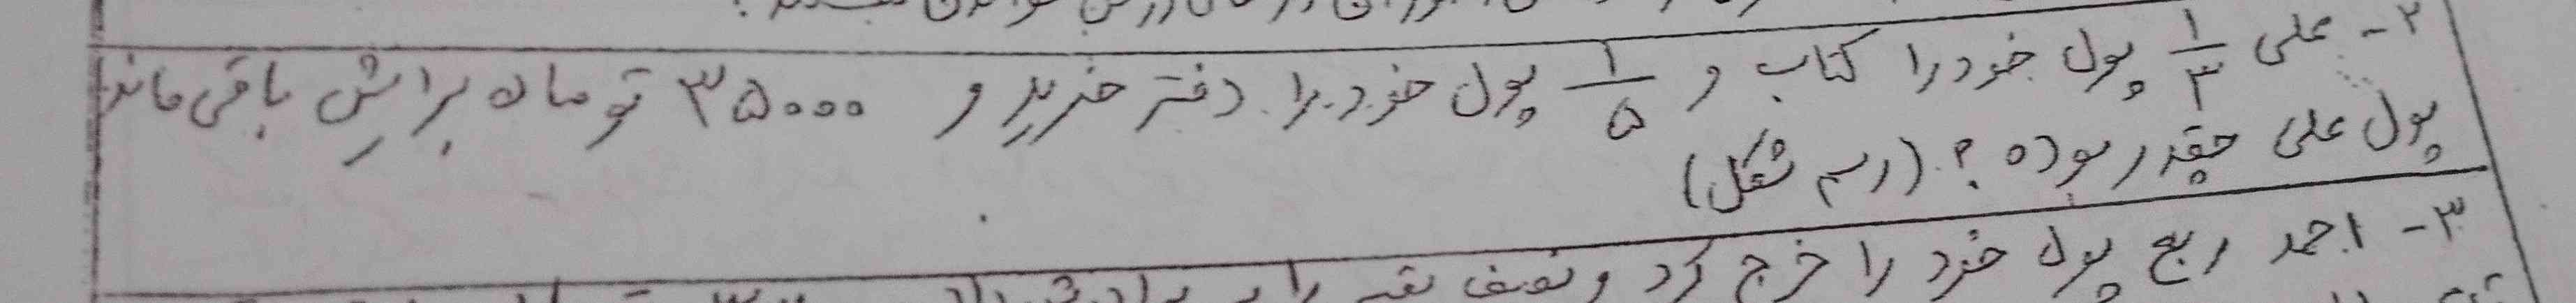 ۲- علی ۱/۳ پول خود را کتاب و ۱/۵ پول خود را دفتر خرید و ۳۵۰۰۰ تومان برایش باقی ماند
پول علی چقدر بوده؟ (رسم شکل)
۳- احمد ربع پول خود را خرج کرد و نصف بقیه را به